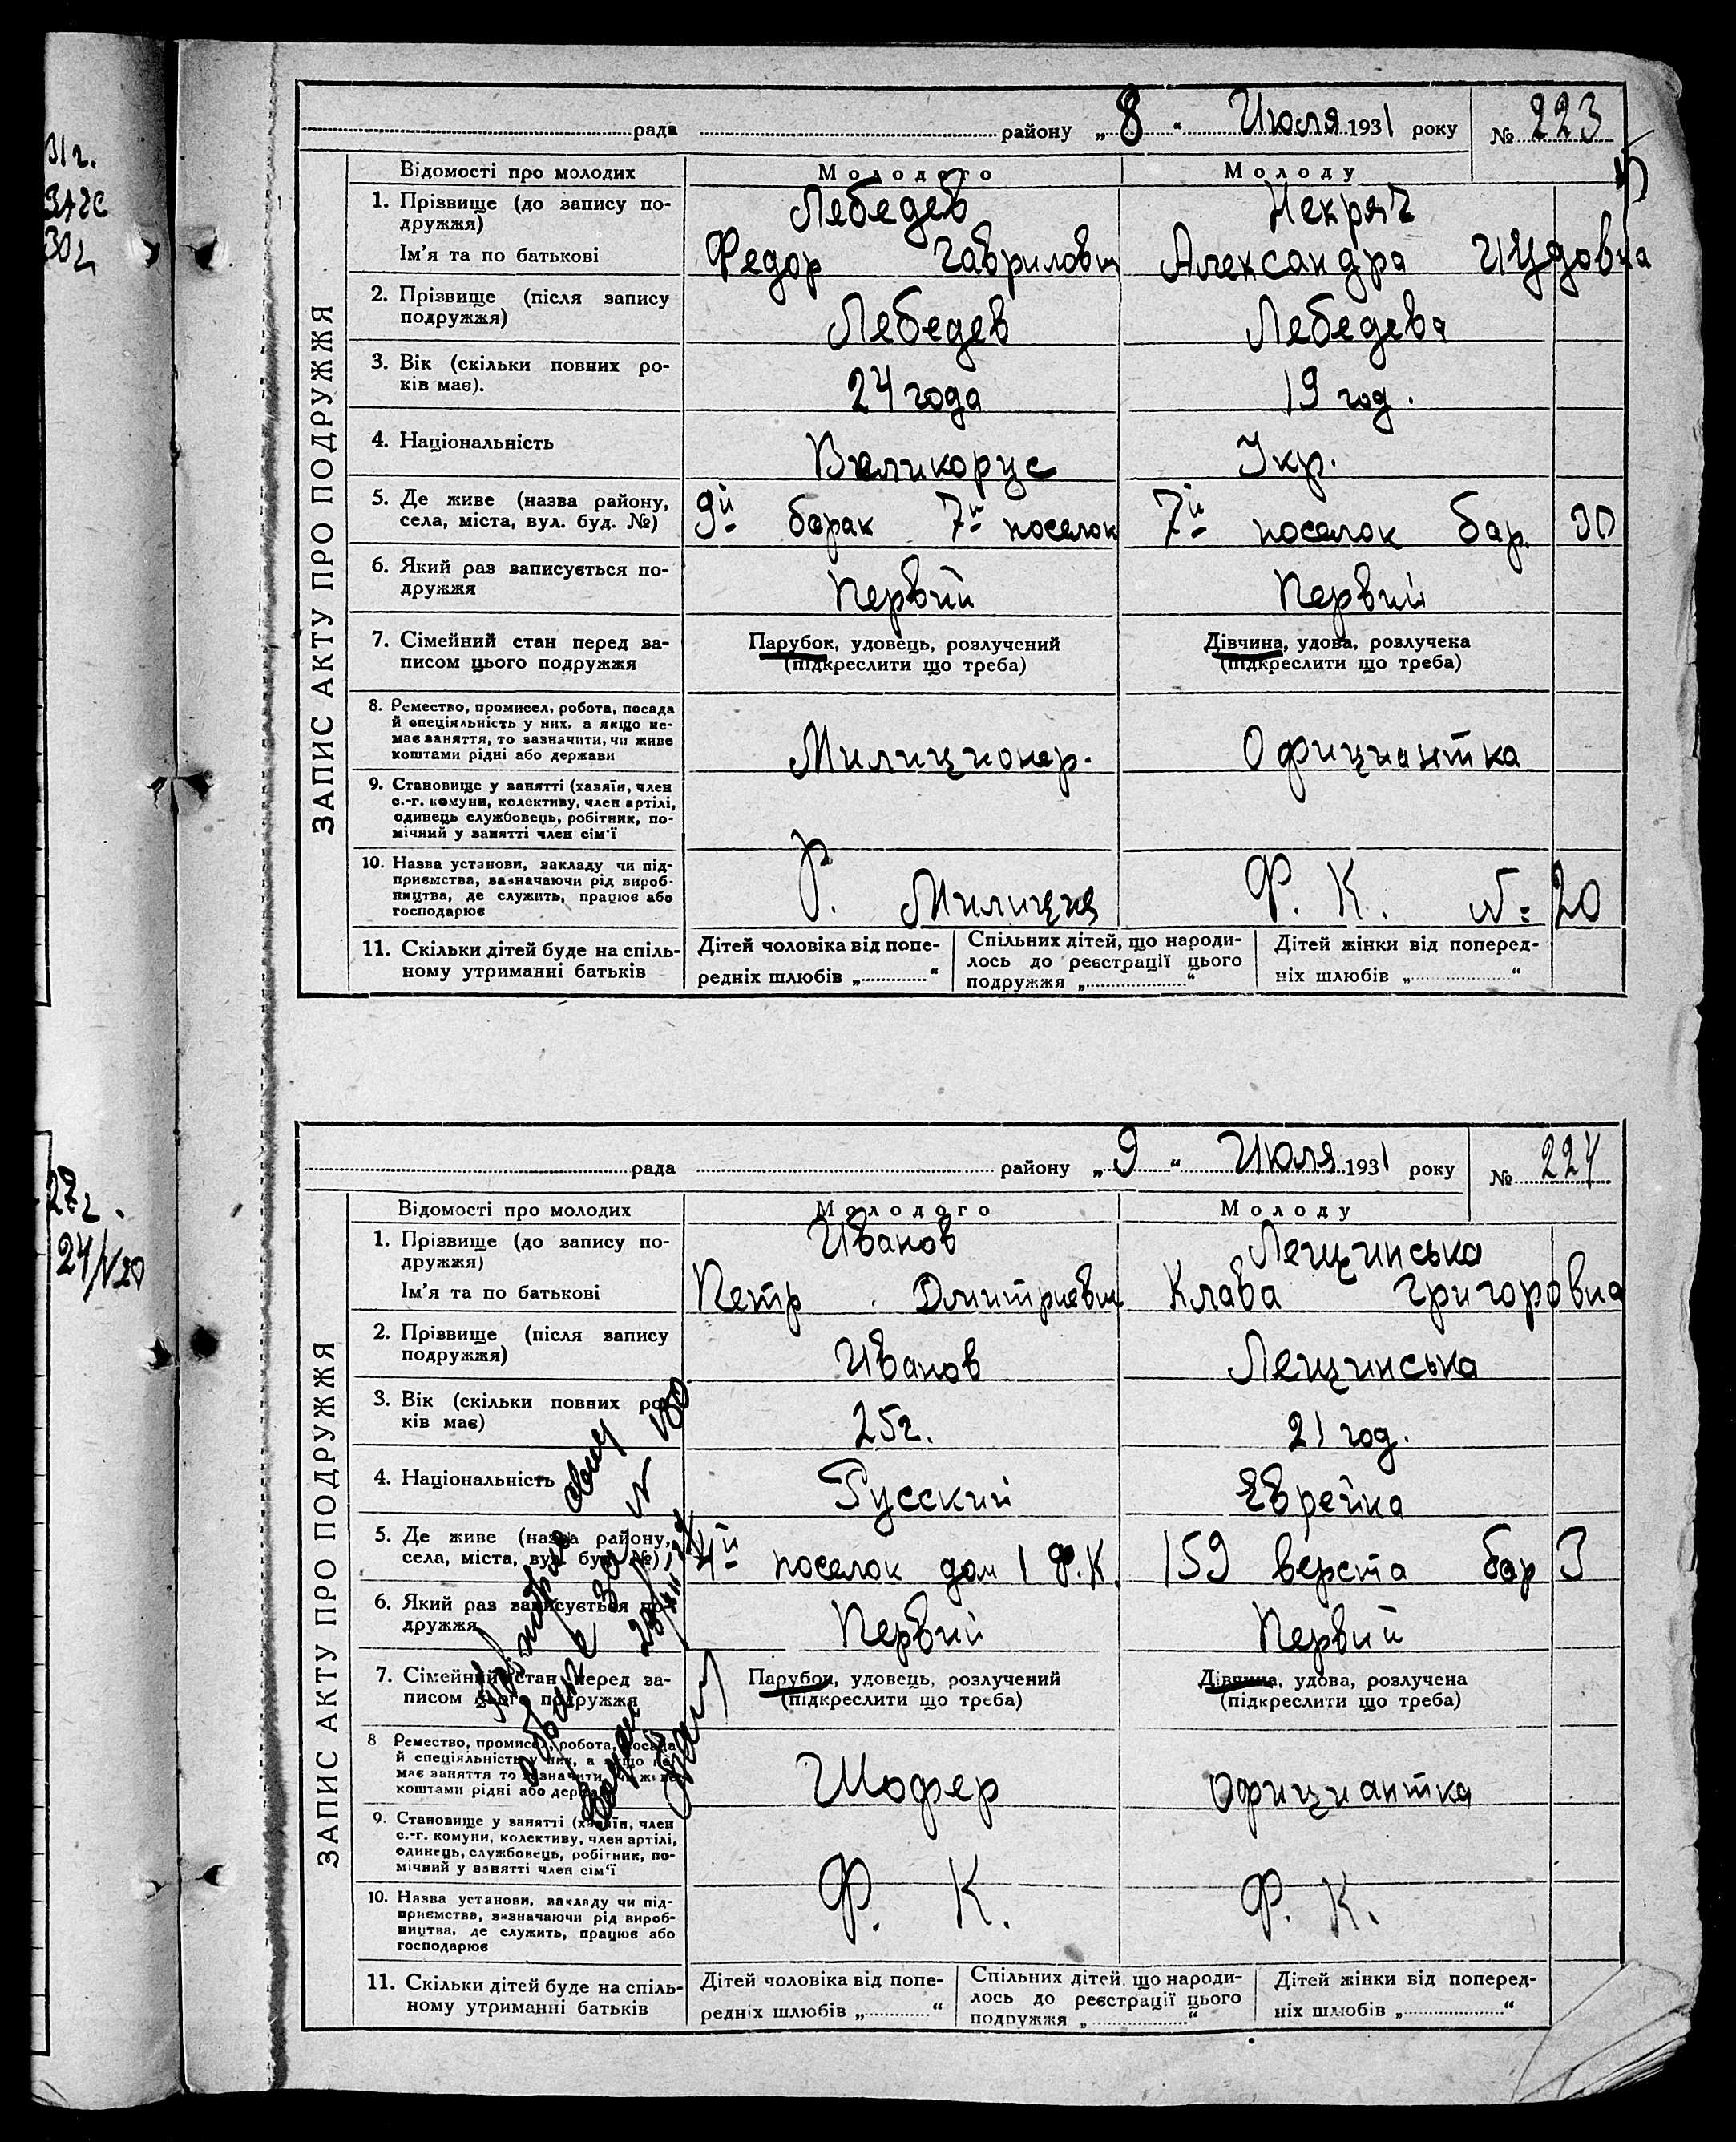 31 г.
ЗАГС
30 г.
рада района „ 8 “ Июля 1931 року № 223
ЗАПИС АКТУ ПРО ПОДРУЖЖЯ
Відомості про молодих Молодого Молоду
1. Прізвище (до запису по- Лебедев Некряч
дружжя)
Ім'я та по батькові Федор Гаврилович Александра
2. Прізвище (після запису
подружжя) Лебедев Лебедева
3. Вік (скільки повних ро-
ків має). 24 года 19 год.
4. Національність Великорус Укр.
5. Де живе (назва району,
села, міста, вул. буд. №) 9й барак 7й поселок 7й поселок бар. 30
6. Який раз записується по-
дружжя Первий Первий
7. Сімейний стан перед за- Парубок, удовець, розлучений Дівчина, удова, розлучека
писом цього подружжя (підкреслити що треба) (підкреслити що треба)
8. Ремество, промисел, робота, посада
й спеціяльність у них, а якщо не-
має заняття, то зазначити, чи живе Милиционер. Официантка
коштами рідні або держави
9. Становище у занятті (хазяїн, член
с.-г. комуни, колективу, член артілі,
одинець службовець, робітник, по-
мічний у занятті член сім'ї
10. Назва установи, закладу чи під-
приємства, зазначаючи рід вироб-
ництва, де служить, працює або Р. Милиция Ф. К. № 20
господарює
11. Скільки дітей буде на спіль- Дітей чоловіка від попе- Спільних дітей, що народи- Дітей жінки від поперед-
ному утриманні батьків редніх шлюбів „ “ лось до реєстрації цього ніх шлюбів „ “
подружжя „ “
27 г.
рада району „ 9 “ Июля 1931 року № 224
ЗАПИС АКТУ ПРО ПОДРУЖЖЯ
Відомості про молодих Молодого Молоду
1. Прізвище (до запису по- Иванов Лещинська
дружжя)
Ім'я та по батькові Петр Дмитриевич Клава Григоровна
2. Прізвище (після запису
подружжя) Иванов Лещинська
3. Вік (скільки повних ро-
ків має) 25 г. 21 год.
4. Національність Русский Еврейка
5. Де живе (назва району,
села, міста, вул. буд. №) 4й поселок дом 1 Ф.К. 159 верста бар 3
6. Який раз записується по-
дружжя Первий Первий
7. Сімейний стан перед за- Парубок, удовець, розлучений Дівчина, удова, розлучена
писом цього подружжя (підкреслити що треба) (підкреслити що треба)
8 Ремество, промисел, робота, посада
й спеціяльність у них, а якщо не-
має заняття то зазначити, чи живе Шофер Официантка
коштами рідні або держави
9. Становище у занятті (хазяїн, член
с.-г. комуни, колективу, член артілі,
одинець, службовець, робітник, по-
мічний у занятті член сім'ї
10. Назва установи, закладу чи під- Ф. К. Ф. К.
приємства, зазначаючи рід вироб-
ництва, де служить, працює або
господарює
11. Скільки дітей буде на спіль- Дітей чоловіка від попе- Спільних дітей, що народи- Дітей жінки від поперед-
ному утриманні батьків редніх шлюбів „ “ лось до реєстрації цього ніх шлюбів „ “
подружжя „ “